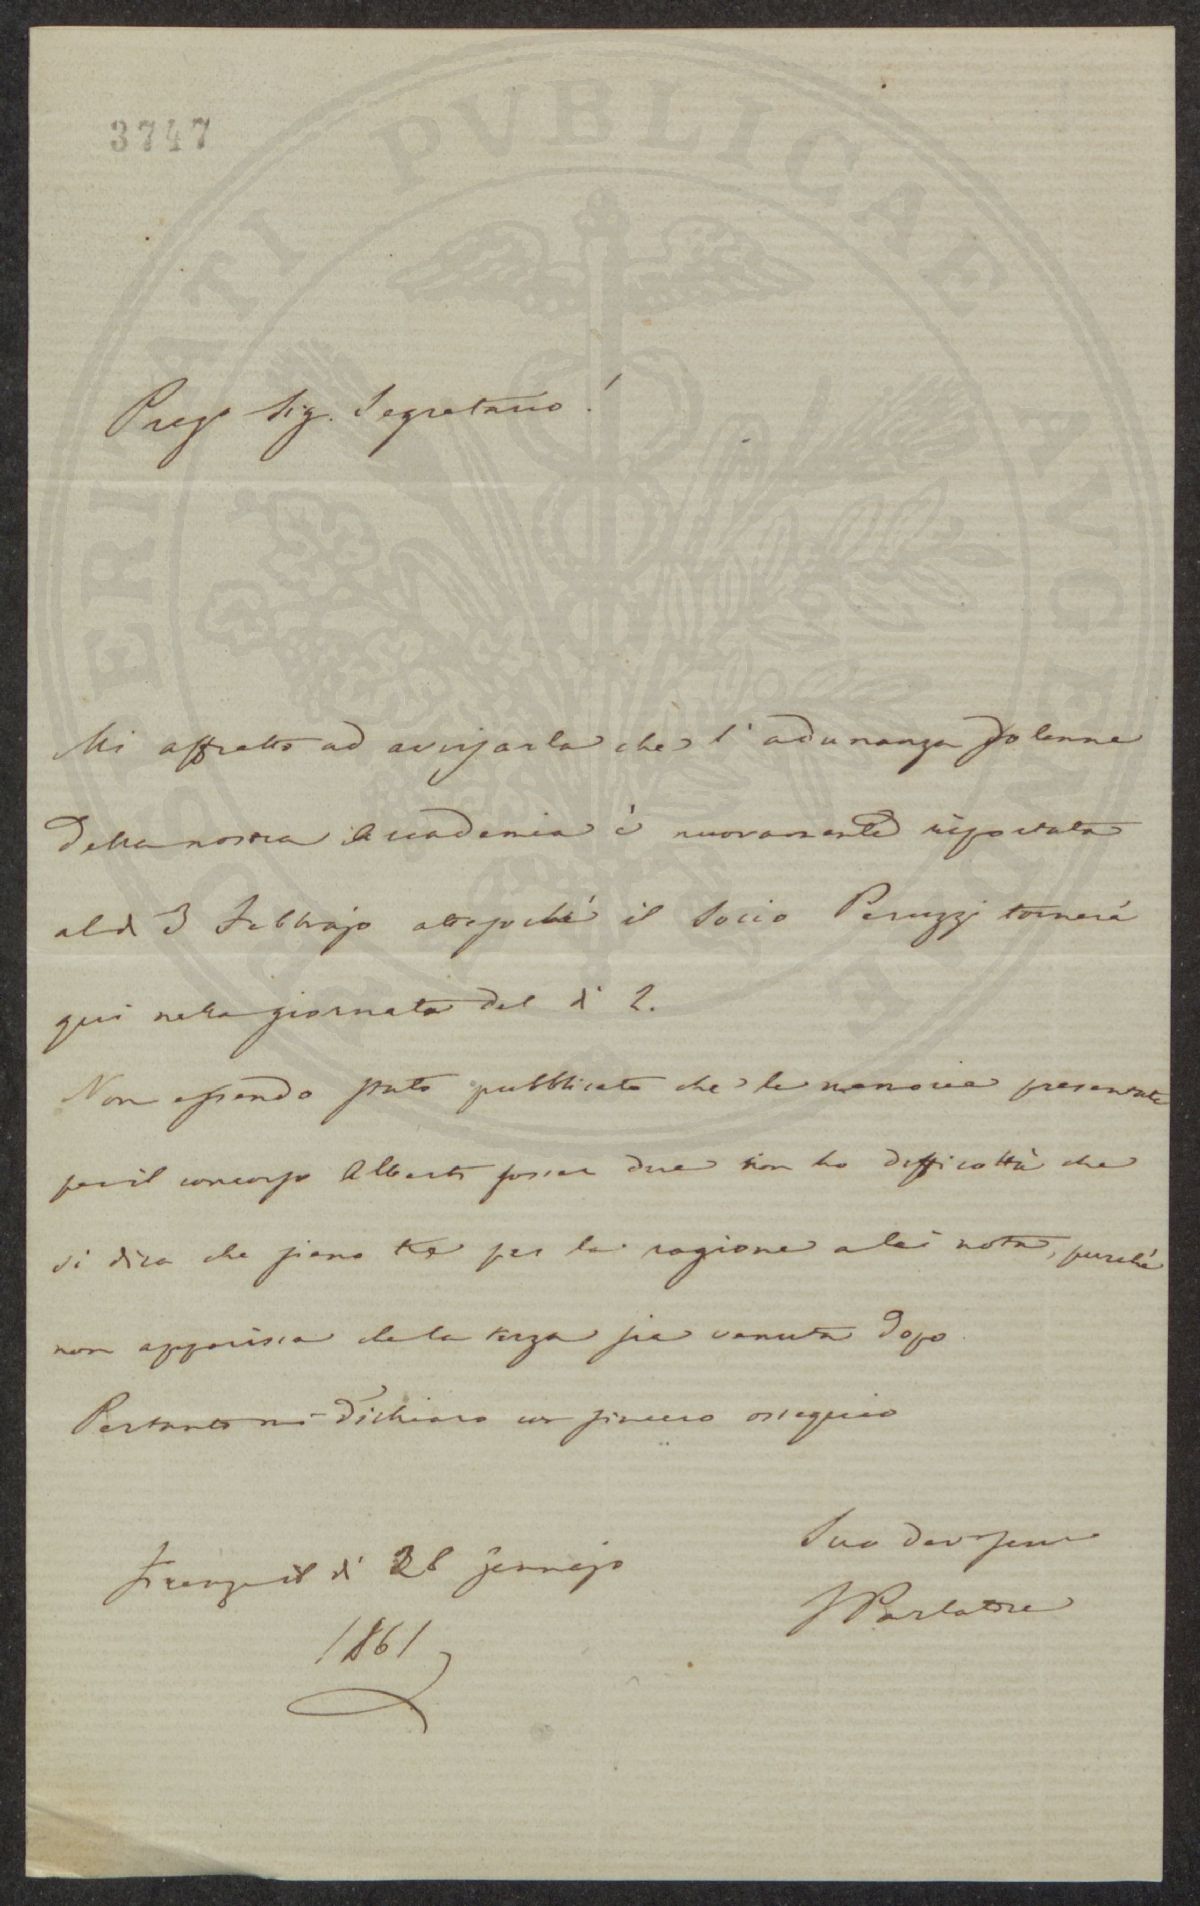 3747
PROSPERITATI PVBLICAE AVGENDAE
Preg. Sig. Segretario!
Mi affretto ad avvisarla che l'adunanza solenne
della nostra Accademia è nuovamente riportata
al dì 3 Febbrajo attesoché il Socio Peruzzi tornerà
qui nella giornata del dì 2.
Non essendo stato pubblicato che le memorie presentate
per il concorso Alberti fosser due non ho difficoltà che
si dica che sieno tre per la ragione a lei nota, purché
non apparisca che la terza sia venuta dopo
Pertanto mi dichiaro con sincero ossequio
Suo dev
Parlatore
Firenze il dì 28 Gennajo
1861